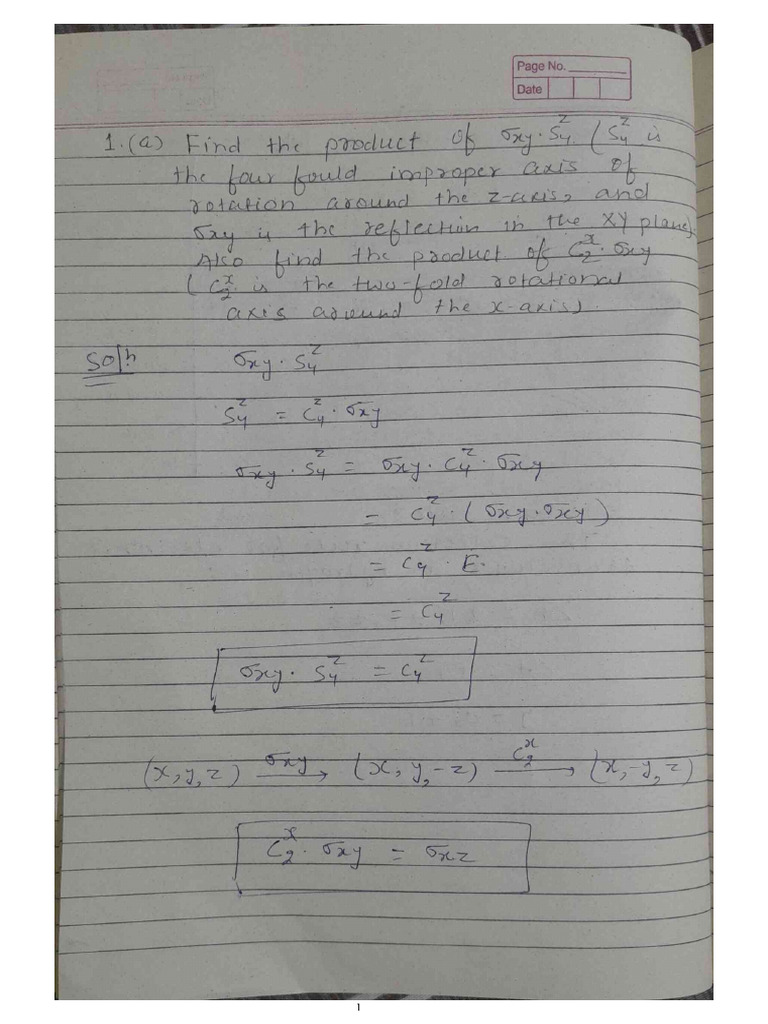 Page No.
Date
1.(a) Find the product of σxy·S₄ᶻ. (S₄ᶻ is
the four fould improper axis of
rotation around the z-axis, and
σxy is the reflection in the XY plane).
Also find the product of C₂ˣ·σxy
(C₂ˣ is the two-fold rotational
axis around the x-axis).
Solⁿ: σxy·S₄ᶻ
S₄ᶻ = C₄ᶻ·σxy
σxy·S₄ᶻ = σxy·C₄ᶻ·σxy
= C₄ᶻ·(σxy·σxy)
= C₄ᶻ·E.
= C₄ᶻ
σxy·S₄ᶻ = C₄ᶻ
(x,y,z) —σxy→ (x,y,-z) —C₂ˣ→ (x,-y,z)
C₂ˣ·σxy = σxz
1